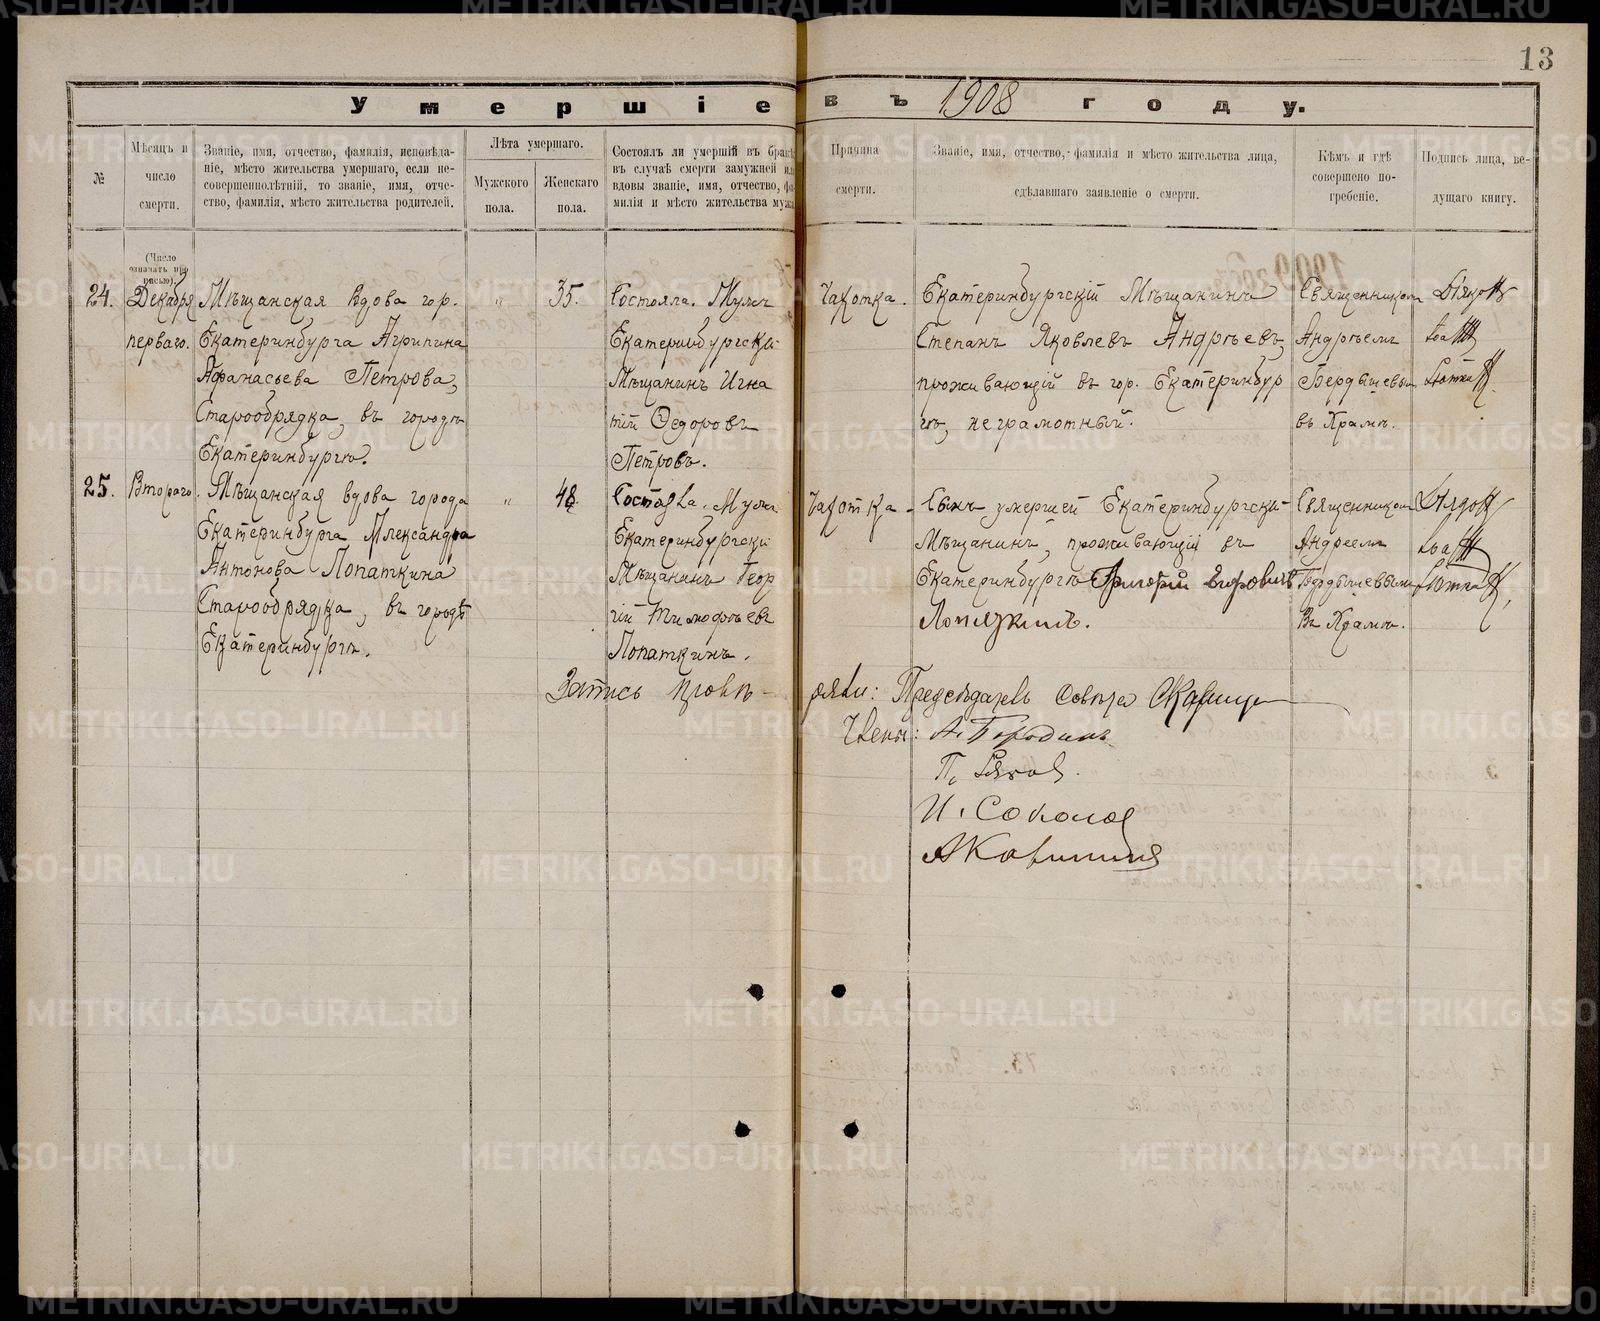 13
Умершіе въ 1908 году.
№
Мѣсяцъ и
число
смерти.
Званіе, имя, отчество, фамилія, исповѣда-
ніе, мѣсто жительства умершаго, если не-
совершеннолѣтній, то званіе, имя, отче-
ство, фамилія, мѣсто жительства родителей.
Лѣта умершаго.
Мужского
пола.
Женскаго
пола.
Состоялъ ли умершій въ бракѣ
въ случаѣ смерти замужней ил
вдовы званіе, имя, отчество, фа
милія и мѣсто жительства мужа
Причина
смерти.
Званіе, имя, отчество, фамилія и мѣсто жительства лица,
сдѣлавшаго заявленіе о смерти.
Кѣмъ и гдѣ
совершено по-
гребеніе.
Подпись лица, ве-
дущаго книгу.
(Число
означать про
писью).
24.
Декабря
перваго.
Мѣщанская вдова гор.
Екатеринбурга Агрипина
Афанасьева Петрова,
Старообрядка, въ городѣ
Екатеринбургѣ.
"
35.
Состояла. Мужъ
Екатеринбургскій
Мѣщанинъ Игна
тій Ѳедоровъ
Петровъ.
Чахотка.
Екатеринбургскій Мѣщанинъ
Степанъ Яковлевъ Андрѣевъ,
проживающій въ гор. Екатеринбур
гѣ, неграмотный.
Священникомъ
Андрѣемъ
Бердышевым
въ Храмѣ.
25.
Втораго.
Мѣщанская вдова города
Екатеринбурга Александра
Антонова Лопаткина
Старообрядка, въ городѣ
Екатеринбургѣ.
"
48.
Состояла. Мужъ
Екатеринбургскій
Мѣщанинъ Геор
гій Тимофѣевъ
Лопаткинъ.
Чахотка
Сынъ умершей Екатеринбургскій
Мѣщанинъ, проживающій въ
Екатеринбургѣ Григорій Егоровичъ
Лопаткинъ.
Священникомъ
Андреемъ
Бердышевымъ
Въ Храмѣ.
Запись провѣ-
ряли: Предсѣдатель Совѣта
Члены: А. Бородинъ
И. Соколов
METRIKI.GASO-URAL.RU